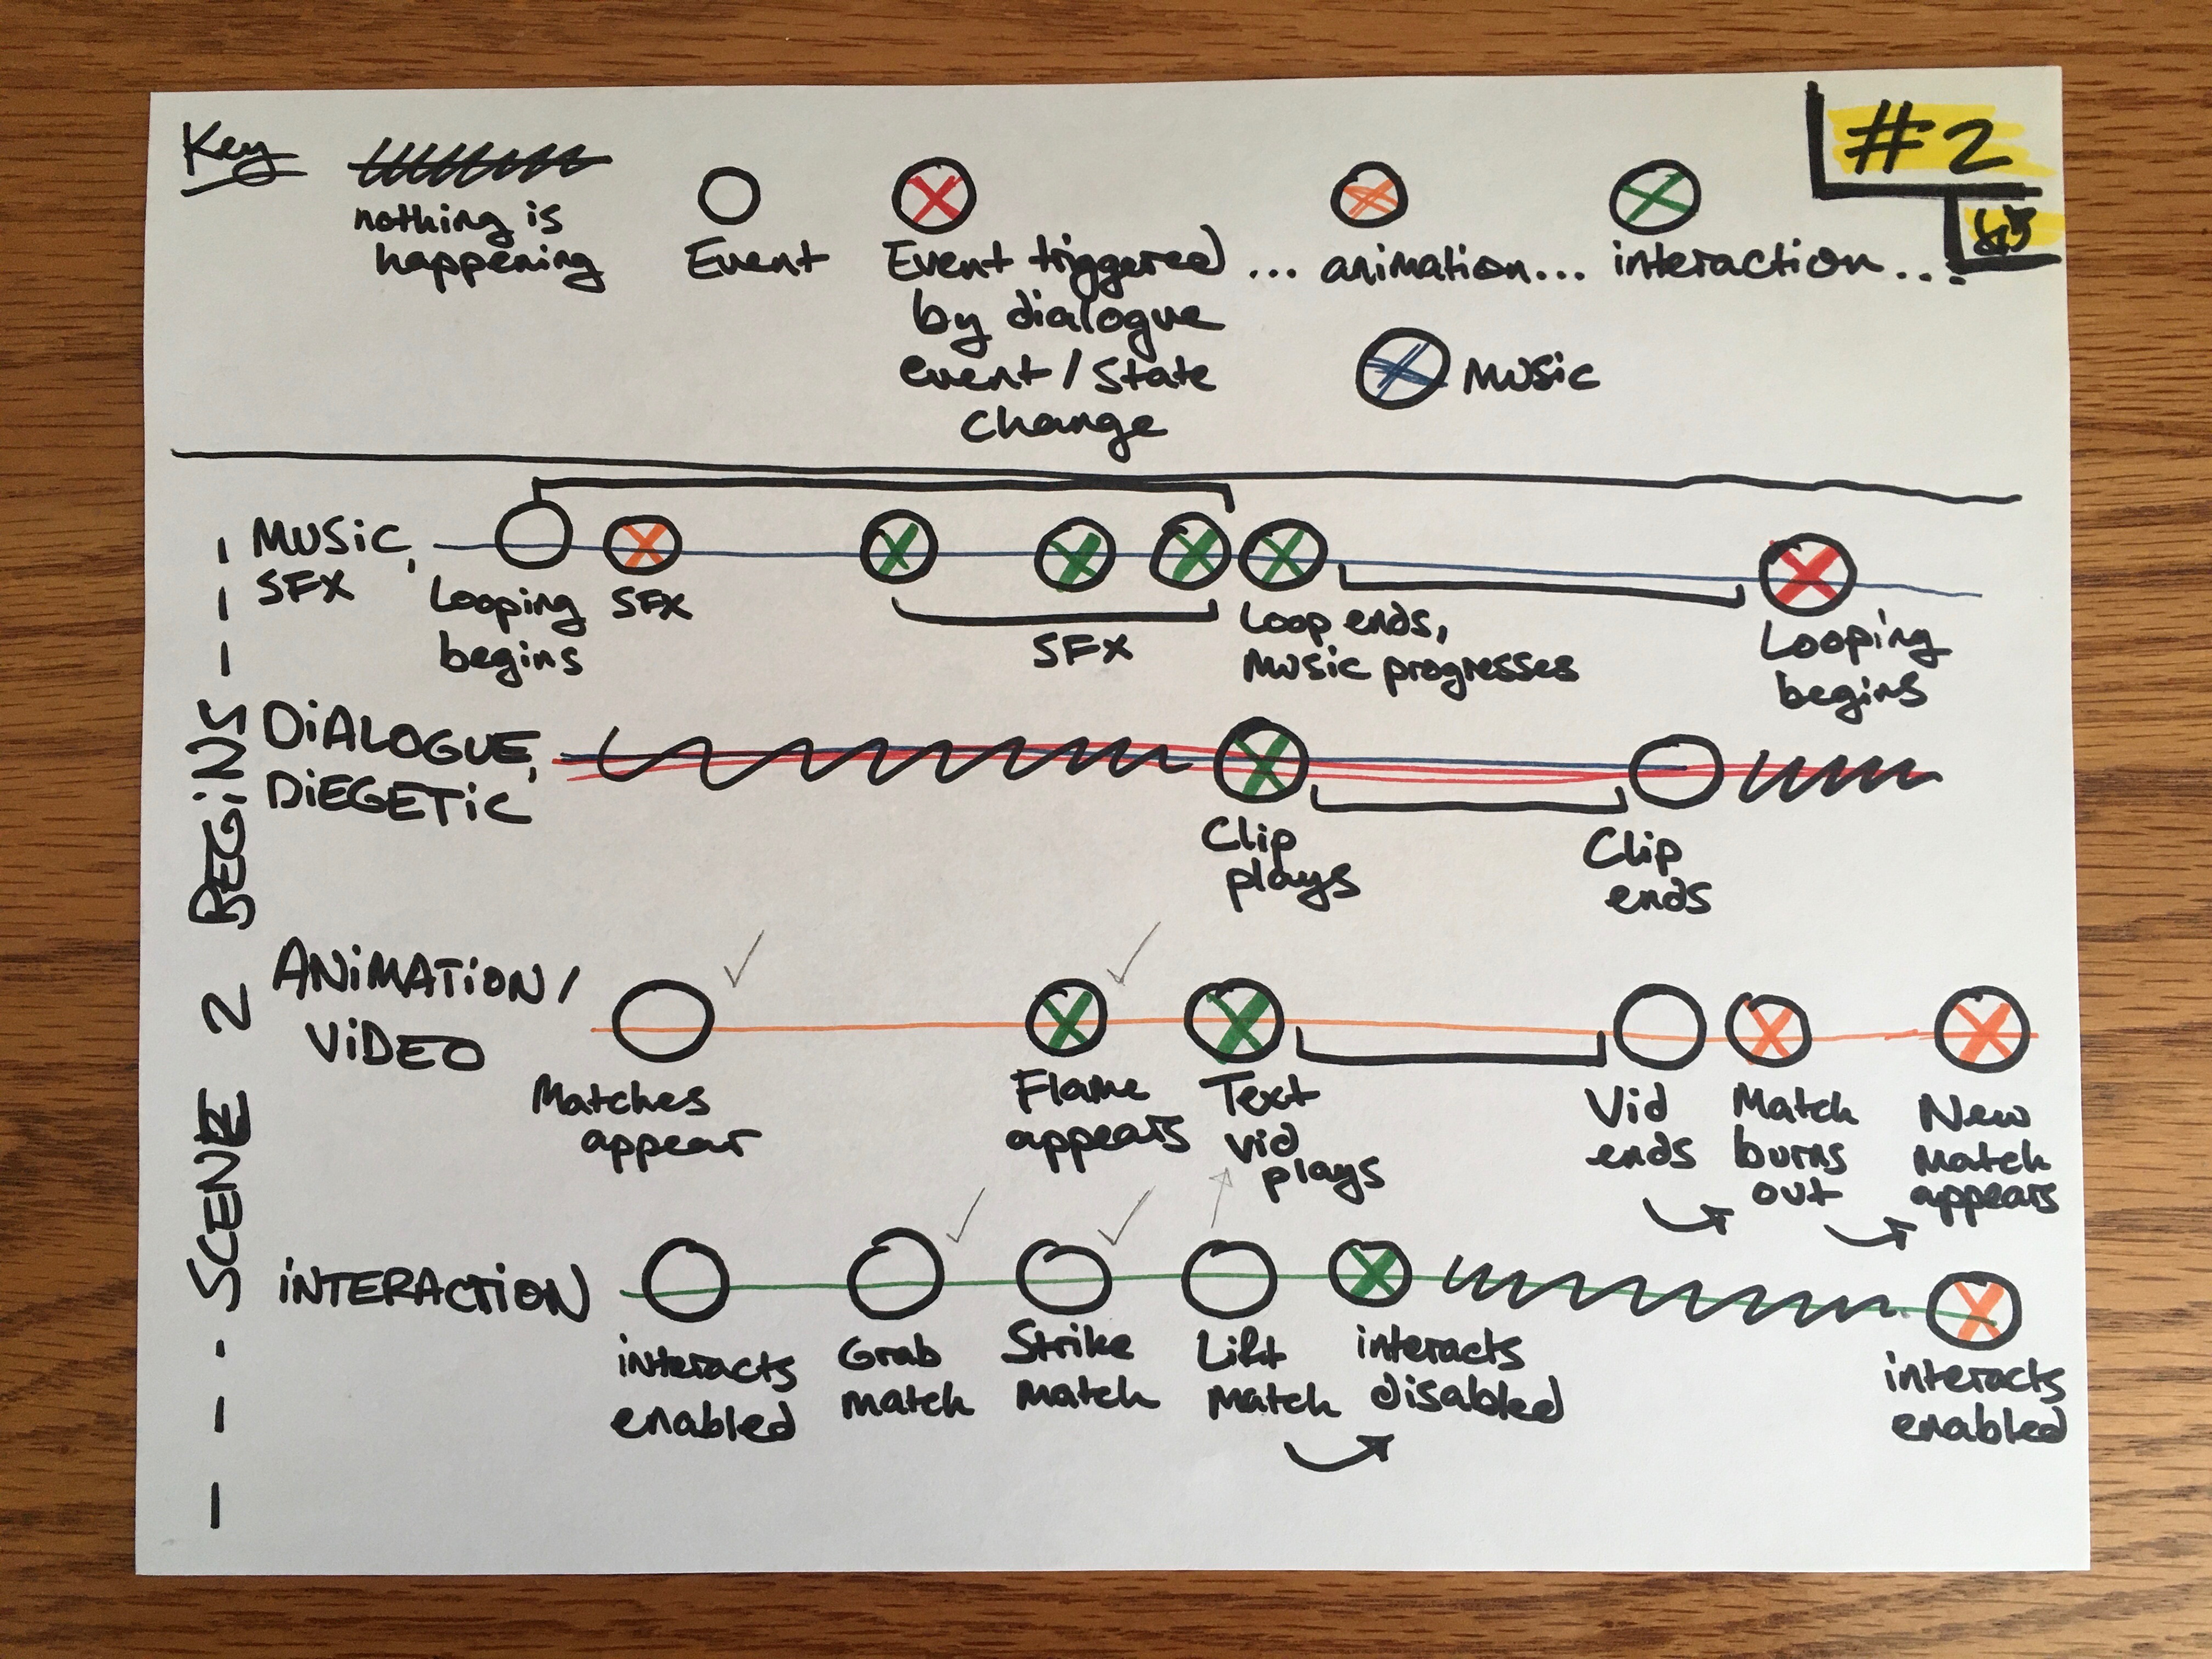 Key
nothing is
happening
Event
Event triggered
by dialogue
event / state
change
... animation...
interaction...
Music
#2
MUSIC,
SFX
Looping
begins
SFX
SFX
Loop ends,
Music progresses
Looping
begins
DIALOGUE,
DIEGETIC
Clip
plays
Clip
ends
ANIMATION/
VIDEO
Matches
appear
Flame
appears
Text
vid
plays
Vid
ends
Match
burns
out
New
Match
appears
INTERACTION
interacts
enabled
Grab
match
Strike
Match
Lift
Match
interacts
disabled
interacts
enabled
SCENE 2 BEGINS